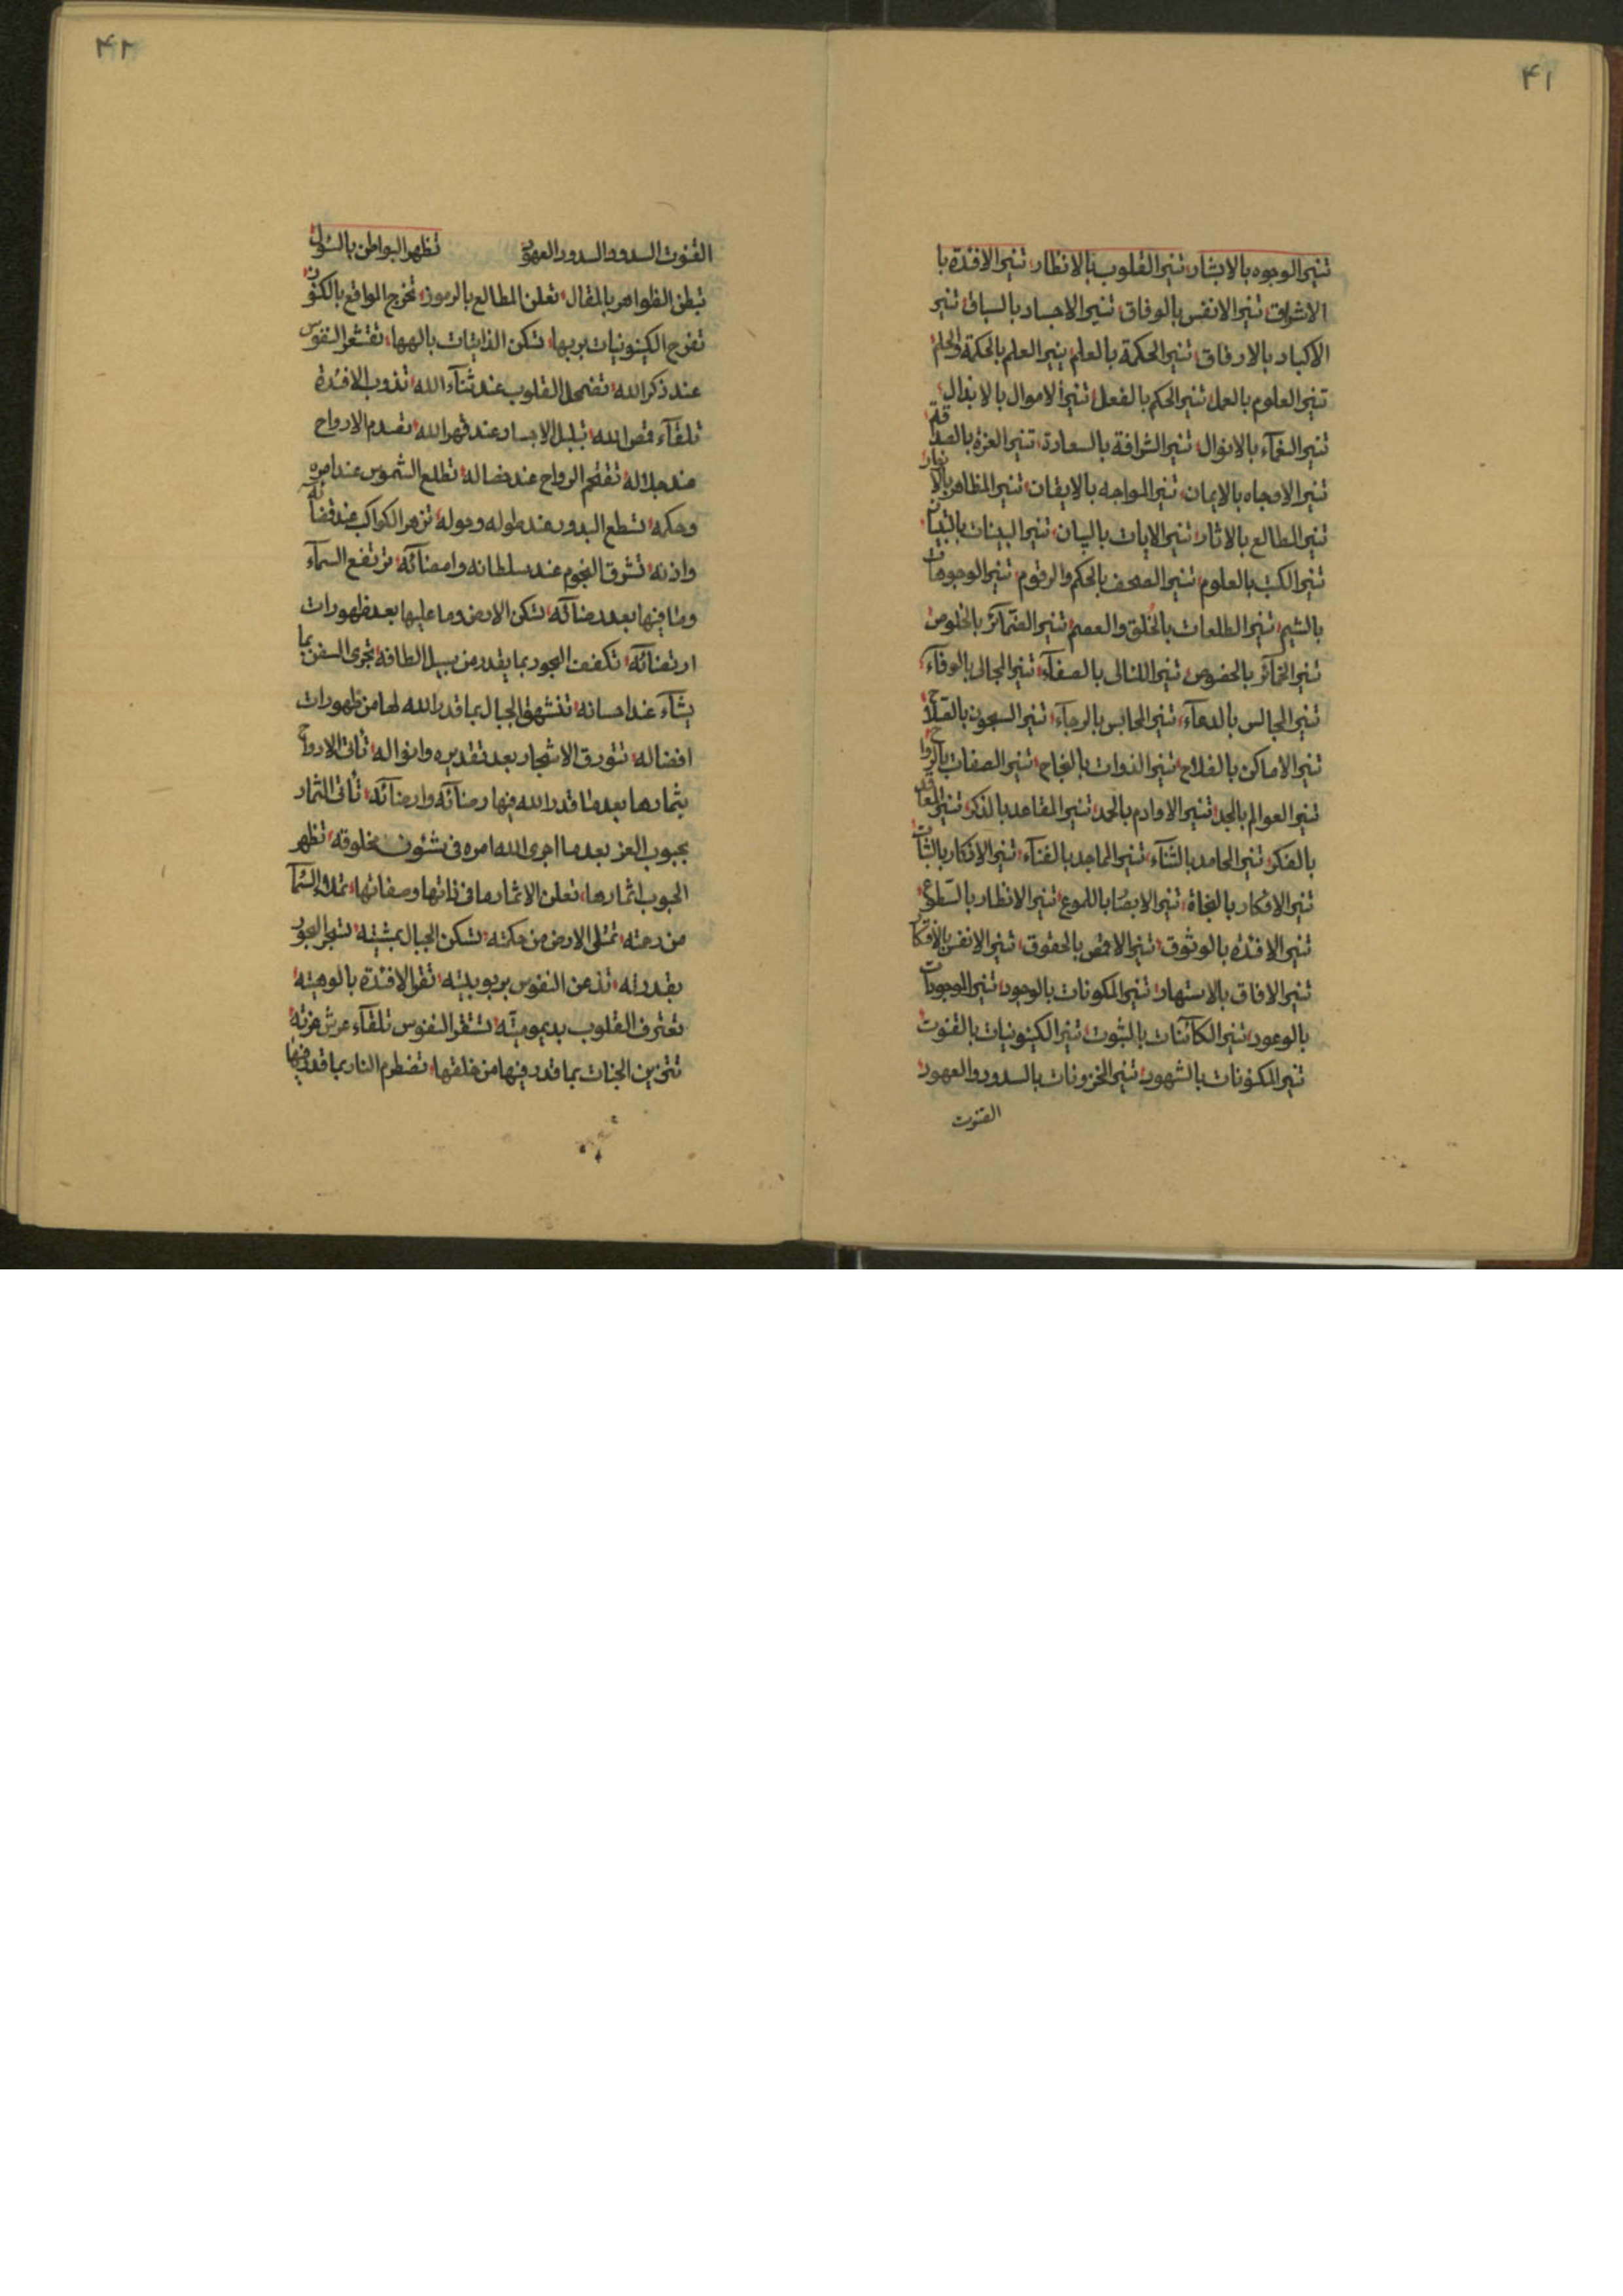 ۴۱
تنیر الوجوه بالابشار تنیر القلوب بالانظار تنیر الافئدة با
الاشراق تنیر الانفس بالوفاق تنیر الاجساد بالسباق تنیر
الاکباد بالارفاق تنیر الحکمة بالعلم ینیر العلم بالحکمة والحلم
تنیر العلوم بالعمل تنیر الحکم بالفعل تنیر الاموال بالابذال
تنیر الغمآء بالانوال تنیر الشرافة بالسعادة تنیر العزة بالصداقة
تنیر الاوجاه بالایمان تنیر المواجه بالایقان تنیر المظاهر
تنیر المطالع بالاثار تنیر الایات بالبیان تنیر البینات بالتبیان
تنیر الکتب بالعلوم تنیر الصحف بالحکم والرقوم تنیر الوجوهات
بالشیم تنیر الطلعات بالخلق والعصم تنیر الضمآئر بالخلوص
تنیر الخمآئر بالخصوص تنیر اللئالی بالصفآء تنیر المجالی بالوفآء
تنیر المجالس بالدعآء تنیر المحابس بالرجآء تنیر السجون بالصلاح
تنیر الاماکن بالفلاح تنیر الذوات بالنجاح تنیر الصفات
تنیر العوالم بالجد تنیر الاوادم بالحد تنیر المقاعد بالذکر تنیر
بالفکر تنیر المحامد بالثنآء تنیر المماجد بالفنآء تنیر الاذکار بالثبات
تنیر الافکار بالنجاة تنیر الابصار باللموع تنیر الانظار بالسطوع
تنیر الافئدة بالوثوق تنیر الاقمص بالحقوق تنیر الانفس
تنیر الافاق بالاستهار تنیر المکونات بالوجود تنیر الموجودات
بالوعود تنیر الکآئنات بالثبوت تنیر الکینونیات بالقنوت
تنیر المکنونات بالشهود تنیر المخزونات بالسدور والعهود
القنوت
۴۲
القنوت السدود السدور العهود تظهر البواطن
تبطن الظواهر بالمقال تعلن المطالع بالرموز تخرج المواقع بالکنوز
تفرح الکینونیات بربها تسکن الذاتیات بالهها تقشعر النفوس
عند ذکر الله تضمحل القلوب عند ثنآء الله تذوب الافئدة
تلقآء قمص الله تبلبل الاجساد عند قهر الله تصدم الارواح
عند جلاله تطلع الشموس عند امره
وحکمه تسطع البدور عند طوله وحوله تزهر الکواکب عند قضائه
واذنه تشرق النجوم عند سلطانه وامضآئه ترتفع السمآء
وما فیها بعد رضآئه تسکن الارض وما علیها بعد ظهورات
ارتضآئه تکفف البحور بما یقدر من سبیل الطافه تجری السفن بما
یشآء عند احسانه تنشهق الجبال بما قدر الله لها من ظهورات
افضاله تتورق الاشجار بعد تقدیره وانواله تأتی الارواح
بثمارها بعد ما قدر الله فیها رضآئه وارضآئه تأتی الثمار
بحبوب العز بعد ما اجری الله امره فی شئون مخلوقه تظهر
الحبوب اثمارها تعلن الاثمار ما فی ذاتها وصفاتها تملاء السمآء
من رحمته تمتلی الارض من حکمته تسکن الجبال بمشیته تسجر البحور
بقدرته تذعن النفوس بربوبیته تقر الافئدة بالوهیته
تعترف القلوب بدیمومیته تستقر النفوس تلقآء عرش عزته
تتزین الجنات بما قدر فیها من خلقها تضطرم النار بما قدر فیها